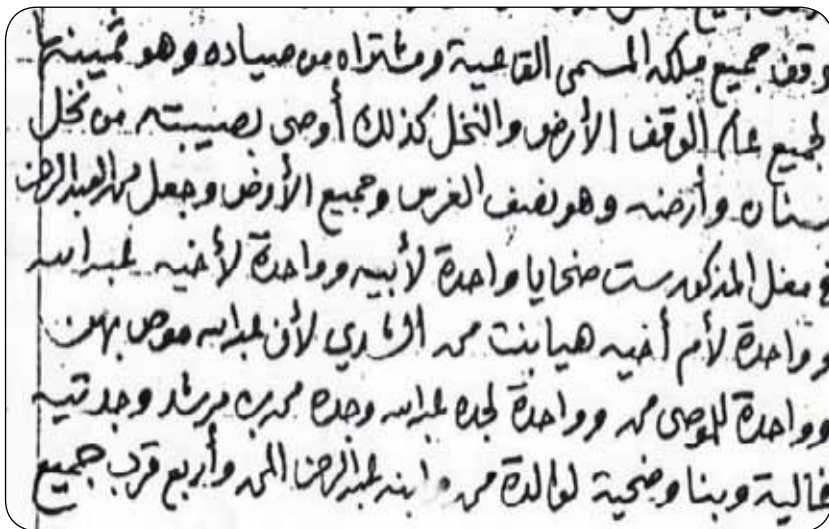 وقف جميع ملكه المسمى القاعية ومشتراه من صياده وهو ثمينة
لجميع عام الوقف الأرض والنخل كذلك أوصى بصيبته من نخل
وأرضه وهو نصف الغرس وجميع الأرض وجعل محمد العبد الرحمن
في مغل المذكور ست ضحايا واحدة لأبيه وواحدة لأخيه عبد الله
وواحدة لأم أخيه هيا بنت محمد الشدي لأن عبد الله موص بهن
وواحدة للموصى محمد وواحدة لجده عبد الله وجده محمد بن مرشد وجدتيه
غالية وبنا وضحية لوالدة محمد وابنه عبد الرحمن المحمد وأربع قرب جميع